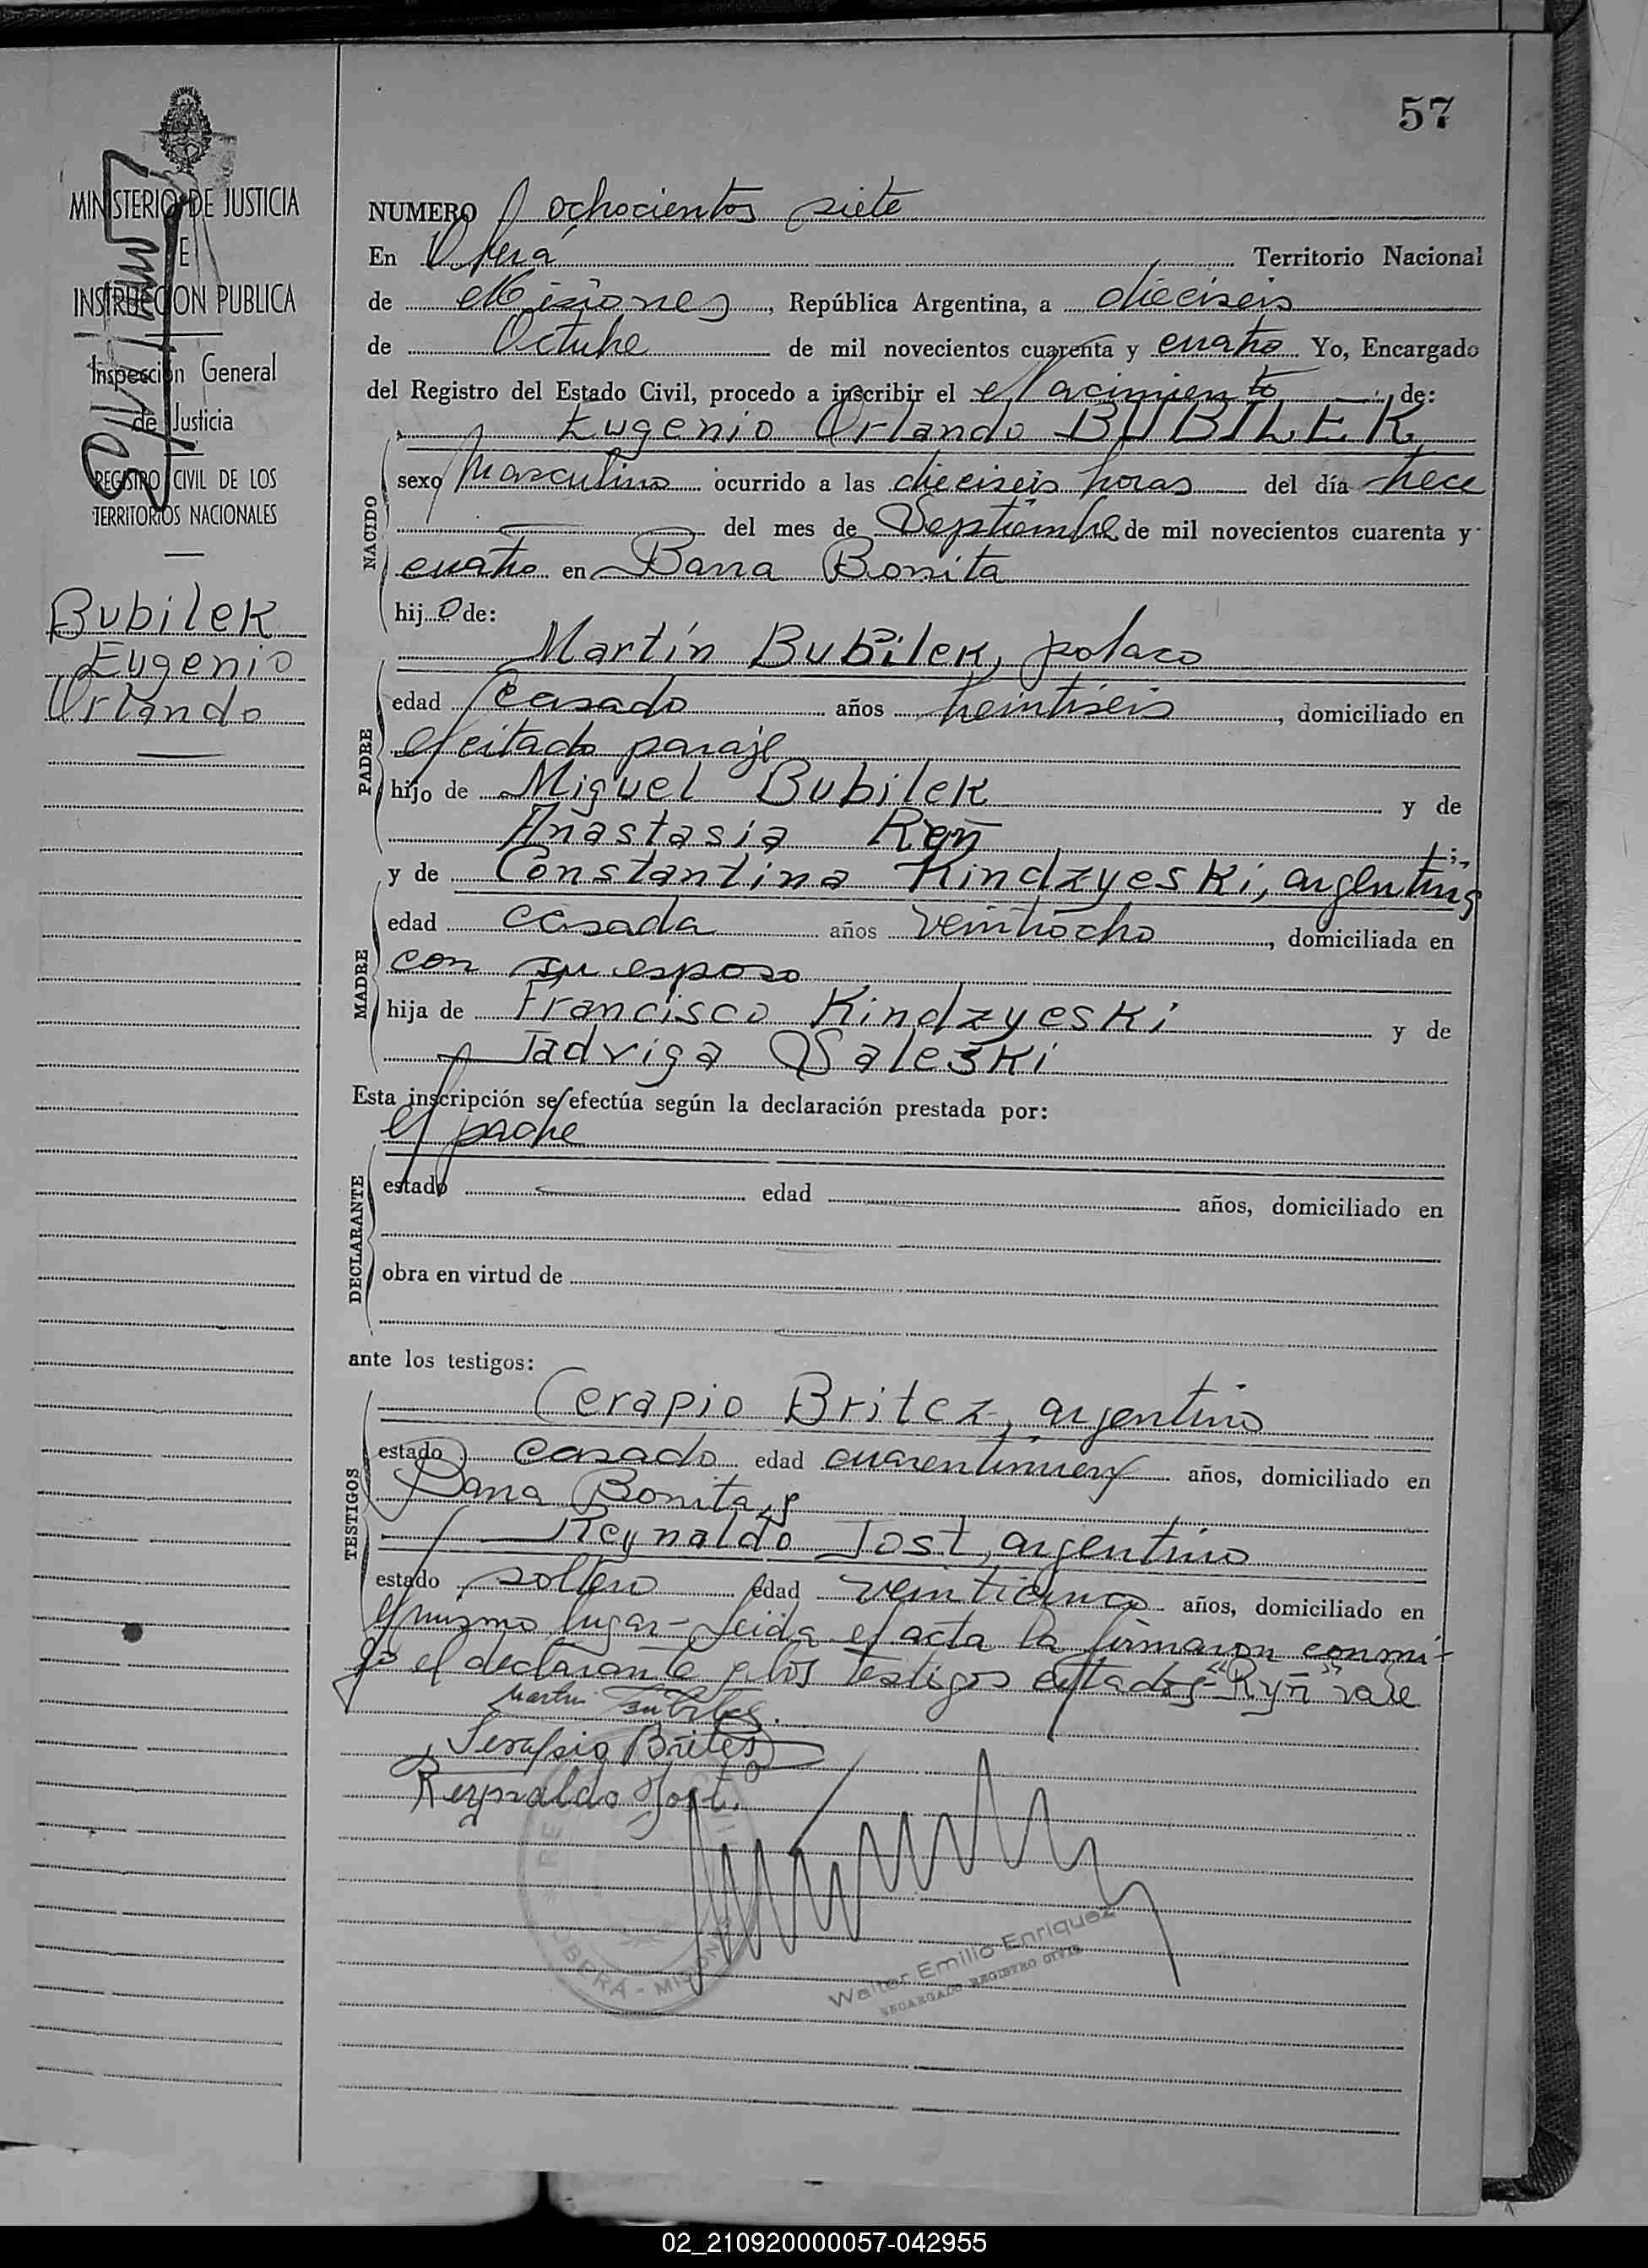 57
MINISTERIO DE JUSTICIA
E
INSTRUCCION PUBLICA
Inspección General
de Justicia
REGISTRO CIVIL DE LOS
TERRITORIOS NACIONALES
Bubilek
Eugenio
Orlando
NUMERO ochocientos siete
En Oberá Territorio Nacional
de Misiones, República Argentina, a dieciseis
de Octubre de mil novecientos cuarenta y cuatro Yo, Encargado
del Registro del Estado Civil, procedo a inscribir el Nacimiento de:
Eugenio Orlando BUBILEK
NACIDO
sexo Masculino ocurrido a las dieciseis horas del día trece
del mes de Septiembre de mil novecientos cuarenta y
cuatro en Barra Bonita
hijo de:
Martín Bubilek, polaco
PADRE
edad casado años treintiseis, domiciliado en
el citado paraje
hijo de Miguel Bubilek y de
Anastasia Ryñ
y de Constantina Kindzyeski, argentina
MADRE
edad casada años veintiocho, domiciliada en
con su esposo
hija de Francisco Kindzyeski y de
Jadviga Saleski
Esta inscripción se efectúa según la declaración prestada por:
el padre
DECLARANTE
estado edad años, domiciliado en
obra en virtud de
ante los testigos:
TESTIGOS
Cerapio Britez, argentino
estado casado edad cuarentinueve años, domiciliado en
Barra Bonita, y
Reynaldo Jost, argentino
estado soltero edad veinticinco años, domiciliado en
el mismo lugar - Leida el acta la firmaron conmi-
go el declarante y los testigos citados - "Ryñ" vale
Martin Bubilek
Serapio Britez
Reynaldo Jost.
OBERÁ - MISIONES
Walter Emilio Enriquez
ENCARGADO REGISTRO CIVIL
02_210920000057-042955